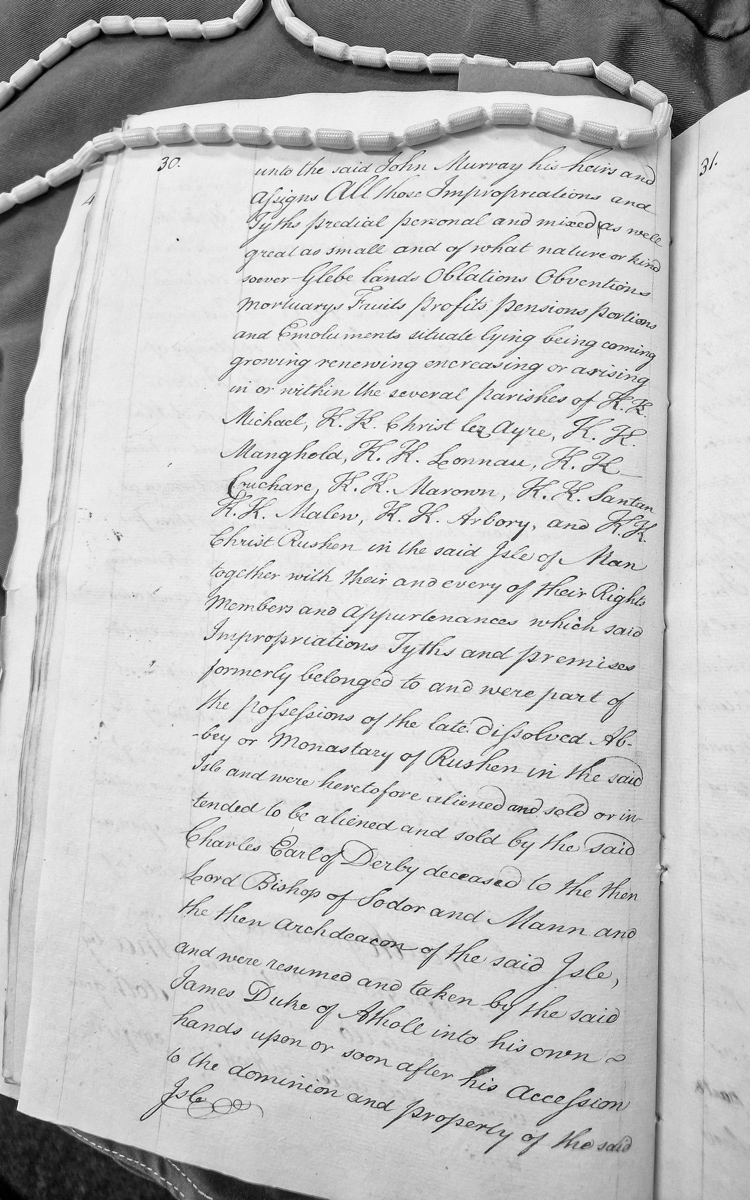 30.
unto the said John Murray his heirs and
Assigns All those Impropreations and
Tyths predial personal and mixed (as well
great as small and of what nature or kind
soever Glebe lands Oblations Obventions
Mortuarys Fruits profits pensions portions
and Emoluments situate lying being coming
growing renewing encreasing or arising
in or within the several parishes of K.K.
Michael, K.K. Christ lez Ayre, K.K.
Manghold, K.K. Lonnau, K.K.
Cuchare, K.K. Marown, K.K. Santan
K.K. Malew, K.K. Arbory, and K.K.
Christ Rushen in the said Isle of Man
together with their and every of their Rights
Members and appurtenances which said
Impropriations Tyths and premises
formerly belonged to and were part of
the possessions of the late dissolved Ab-
-bey or Monastary of Rushen in the said
Isle and were heretofore aliened and sold or in-
tended to be aliened and sold by the said
Charles Earl of Derby deceased to the then
Lord Bishop of Sodor and Mann and
the then Archdeacon of the said Isle,
and were resumed and taken by the said
James Duke of Atholl into his own
hands upon or soon after his Accession
to the dominion and property of the said
Isle
31.